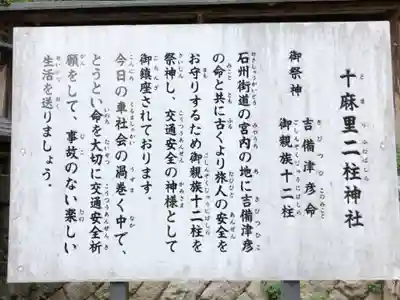 十麻里二柱神社
御祭神
吉備津彦命
御親族十二柱
石州街道の宮内の地に吉備津彦
の命と共に古くより旅人の安全を
お守りするため御親族十二柱を
祭神し、交通安全の神様として
御鎮座されております。
今日の車社会の渦巻く中で、
とうとい命を大切に交通安全祈
願をして、事故のない楽しい
生活を送りましょう。